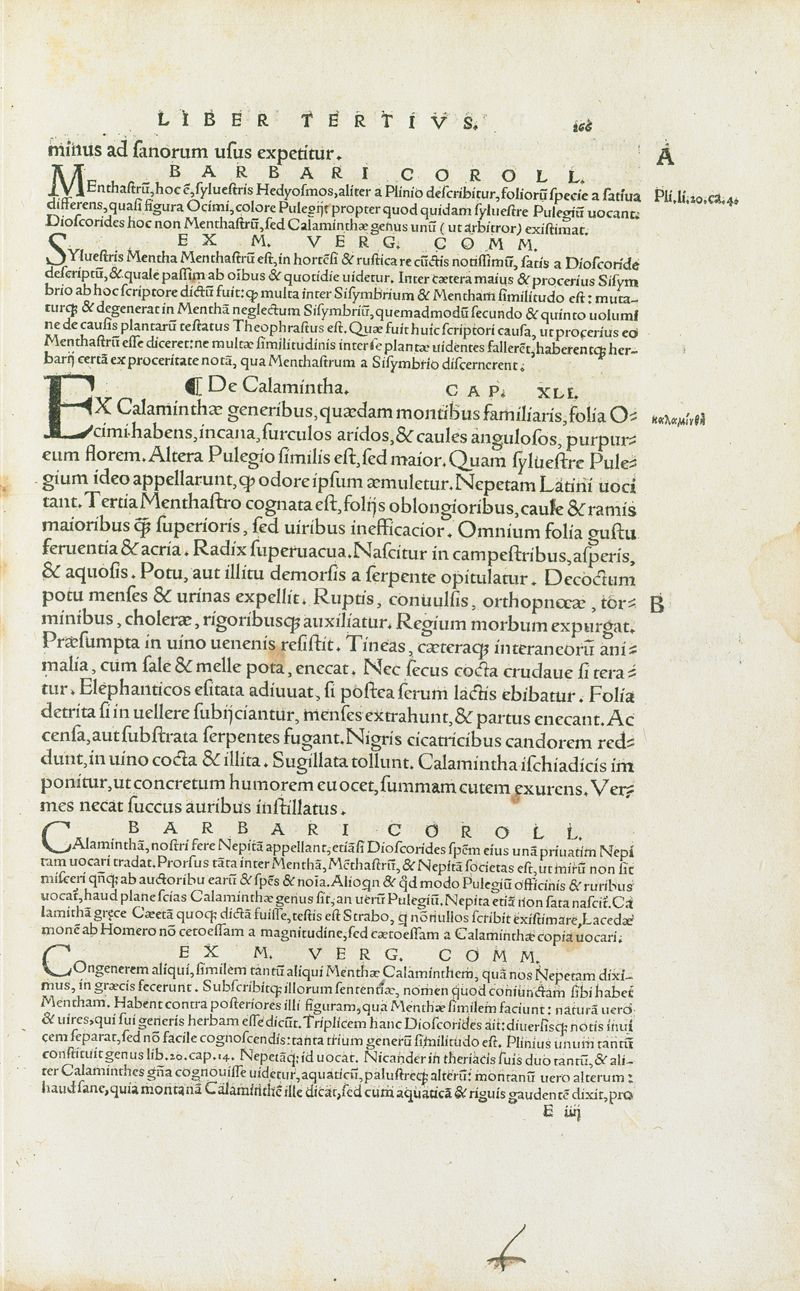 LIBER TERTIVS. 266
minus ad ſanorum uſus expetitur. A
BARBARI COROLL.
MEnthaſtrũ, hoc ẽ, ſylueſtris Hedyoſmos, aliter a Plinio deſcribitur, foliorũ ſpecie a ſatiua Pli. li. 20. ca. 4.
differens, quaſi figura Ocimi, colore Pulegij: propter quod quidam ſylueſtre Pulegiũ uocant:
Dioſcorides hoc non Menthaſtrũ, ſed Calaminthæ genus unũ (ut arbitror) exiſtimat.
EX M. VERG. COMM.
SYlueſtris Mentha Menthaſtrũ eſt, in hortẽſi & ruſtica re cũctis notiſſimũ, ſatis a Dioſcoride
deſcriptũ, & quale paſſim ab oĩbus & quotidie uidetur. Inter cætera maius & procerius Siſym
brio ab hoc ſcriptore dictũ fuit: ꝙ multa inter Siſymbrium & Mentham ſimilitudo eſt: muta-
turqꝫ & degenerat in Menthã neglectum Siſymbriũ, quemadmodũ ſecundo & quinto uolumi
ne de cauſis plantarũ teſtatus Theophraſtus eſt. Quæ fuit huic ſcriptori cauſa, ut procerius eo
Menthaſtrũ eſſe diceret: ne multæ ſimilitudinis inter ſe plantæ uidentes fallerẽt, haberentqꝫ her-
barij certã ex proceritate notã, qua Menthaſtrum a Siſymbrio diſcernerent.
¶ De Calamintha. CAP. XLI.
EX Calaminthæ generibus, quædam montibus familiaris, folia O- καλαμίνθη
cimi habens, incana, ſurculos aridos, & caules anguloſos, purpur-
eum florem. Altera Pulegio ſimilis eſt, ſed maior. Quam ſylueſtre Pule-
gium ideo appellarunt, ꝙ odore ipſum æmuletur. Nepetam Latini uoci
tant. Tertia Menthaſtro cognata eſt, folijs oblongioribus, caule & ramis
maioribus ꝙ̃ ſuperioris, ſed uiribus inefficacior. Omnium folia guſtu
feruentia & acria. Radix ſuperuacua. Naſcitur in campeſtribus, aſperis,
& aquoſis. Potu, aut illitu demorſis a ſerpente opitulatur. Decoctum
potu menſes & urinas expellit. Ruptis, conuulſis, orthopnœæ, tor- B
minibus, choleræ, rigoribusqꝫ auxiliatur. Regium morbum expurgat.
Præſumpta in uino uenenis reſiſtit. Tineas, cæteraqꝫ interaneorũ ani-
malia, cum ſale & melle pota, enecat. Nec ſecus cocta crudaue ſi tera-
tur. Elephanticos eſitata adiuuat, ſi poſtea ſerum lactis ebibatur. Folia
detrita ſi in uellere ſubijciantur, menſes extrahunt, & partus enecant. Ac
cenſa, aut ſubſtrata ſerpentes fugant. Nigris cicatricibus candorem red-
dunt, in uino cocta & illita. Sugillata tollunt. Calamintha iſchiadicis im
ponitur, ut concretum humorem euocet, ſummam cutem exurens. Ver-
mes necat ſuccus auribus inſtillatus.
BARBARI COROLL.
CAlaminthã, noſtri fere Nepitã appellant, etiãſi Dioſcorides ſpẽm eius unã priuatim Nepi
tam uocari tradat. Prorſus tãta inter Menthã, Mẽthaſtrũ, & Nepitã ſocietas eſt, ut mirũ non ſit
miſceri qñqꝫ ab auctoribu earũ & ſpẽs & noĩa. Alioqn & qd̃ modo Pulegiũ officinis & ruribus
uocat̃, haud plane ſcias Calaminthæ genus ſit, an uerũ Pulegiũ. Nepita etiã non ſata naſcit̃. Ca
lamithã grẹce Cætã quoqꝫ dictã fuiſſe, teſtis eſt Strabo, q nõnullos ſcribit exiſtimare, Lacedæ
monẽ ab Homero nõ cetoeſſam a magnitudine, ſed cætoeſſam a Calaminthæ copia uocari.
EX M. VERG. COMM.
COngenerem aliqui, ſimilem tantũ aliqui Menthæ Calaminthem, quã nos Nepetam dixi-
mus, in græcis fecerunt. Subſcribitqꝫ illorum ſententiæ, nomen quod coniunctam ſibi habet
Mentham. Habent contra poſteriores illi figuram, qua Menthæ ſimilem faciunt: naturã uero
& uires, qui ſui generis herbam eſſe dicũt. Triplicem hanc Dioſcorides ait: diuerſisqꝫ notis inui
cem ſeparat, ſed nõ facile cognoſcendis: tanta trium generũ ſimilitudo eſt. Plinius unum tantũ
conſtituit genus lib. 20. cap. 14. Nepetãqꝫ id uocat. Nicander in theriacis ſuis duo tantũ, & ali-
ter Calaminthes gña cognouiſſe uidetur, aquaticũ, paluſtreqꝫ alterũ: montanũ uero alterum:
haud ſane, quia montanã Calaminthẽ ille dicat, ſed cum aquaticã & riguis gaudentẽ dixit, pro
E iiij